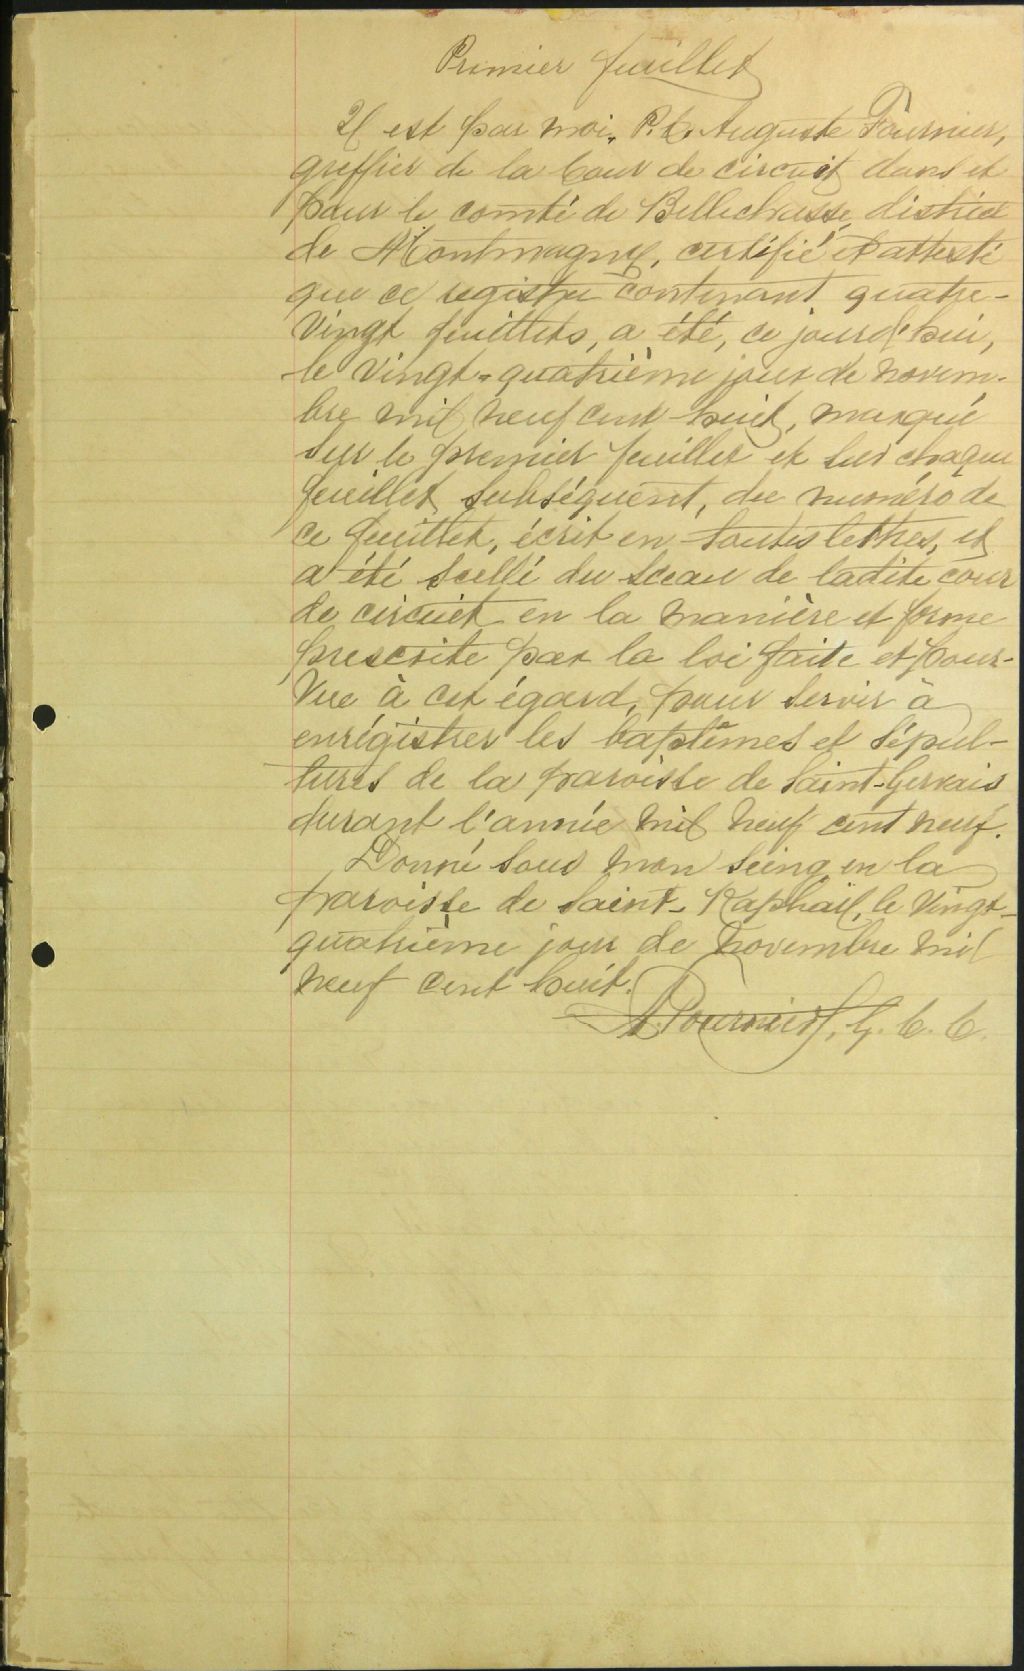 Premier feuillet
Il est par moi, P. C. Auguste Fournier,
greffier de la Cour de circuit dans et
pour le comté de Bellechasse, district
de Montmagny, certifié et attesté
que ce registre contenant quatre-
vingt feuillets, a été, ce jourd'hui,
le vingt-quatrième jour de novem-
bre mil neuf cent huit, marqué
sur le premier feuillet et sur chaque
feuillet subséquent, du numéro de
ce feuillet, écrit en toutes lettres, et
a été scellé du sceau de ladite cour
de circuit en la manière et forme
prescrite par la loi faite et pour-
vue à cet égard, pour servir à
enrégistrer les baptêmes et sépul-
tures de la paroisse de Saint-Gervais
durant l'année mil neuf cent neuf.
Donné sous mon seing en la
paroisse de Saint-Raphaël, le vingt-
quatrième jour de novembre mil
neuf cent huit.
A. Fournier, G. C. C.